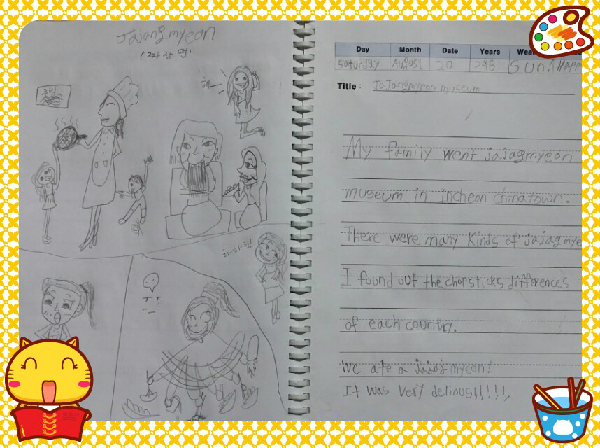 Jajangmyeon
(짜장면)
짜장면
Day Month Date Years
Saturday August 20
Title : Jajangmyeon museum
My family went jajagmyeon
museum in incheon chinatown.
There were many kinds of jajagmye
I found out the chopsticks differences
of each country.
We ate a jajagmyeon!
It was very delious!!!!,